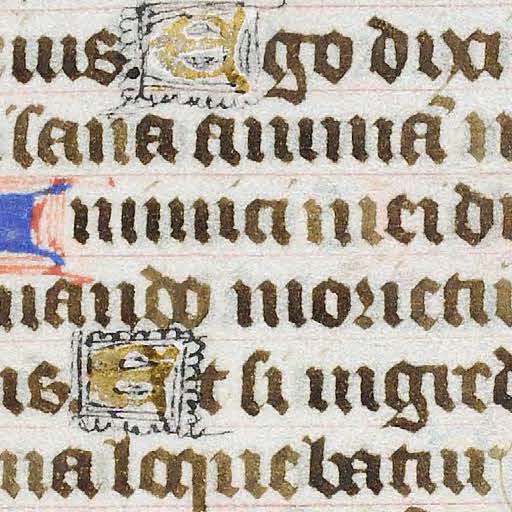 eius. Ego dixi
sana animā m
Inimici mei di
uando moriet
us Et si ingred
na loquebatur